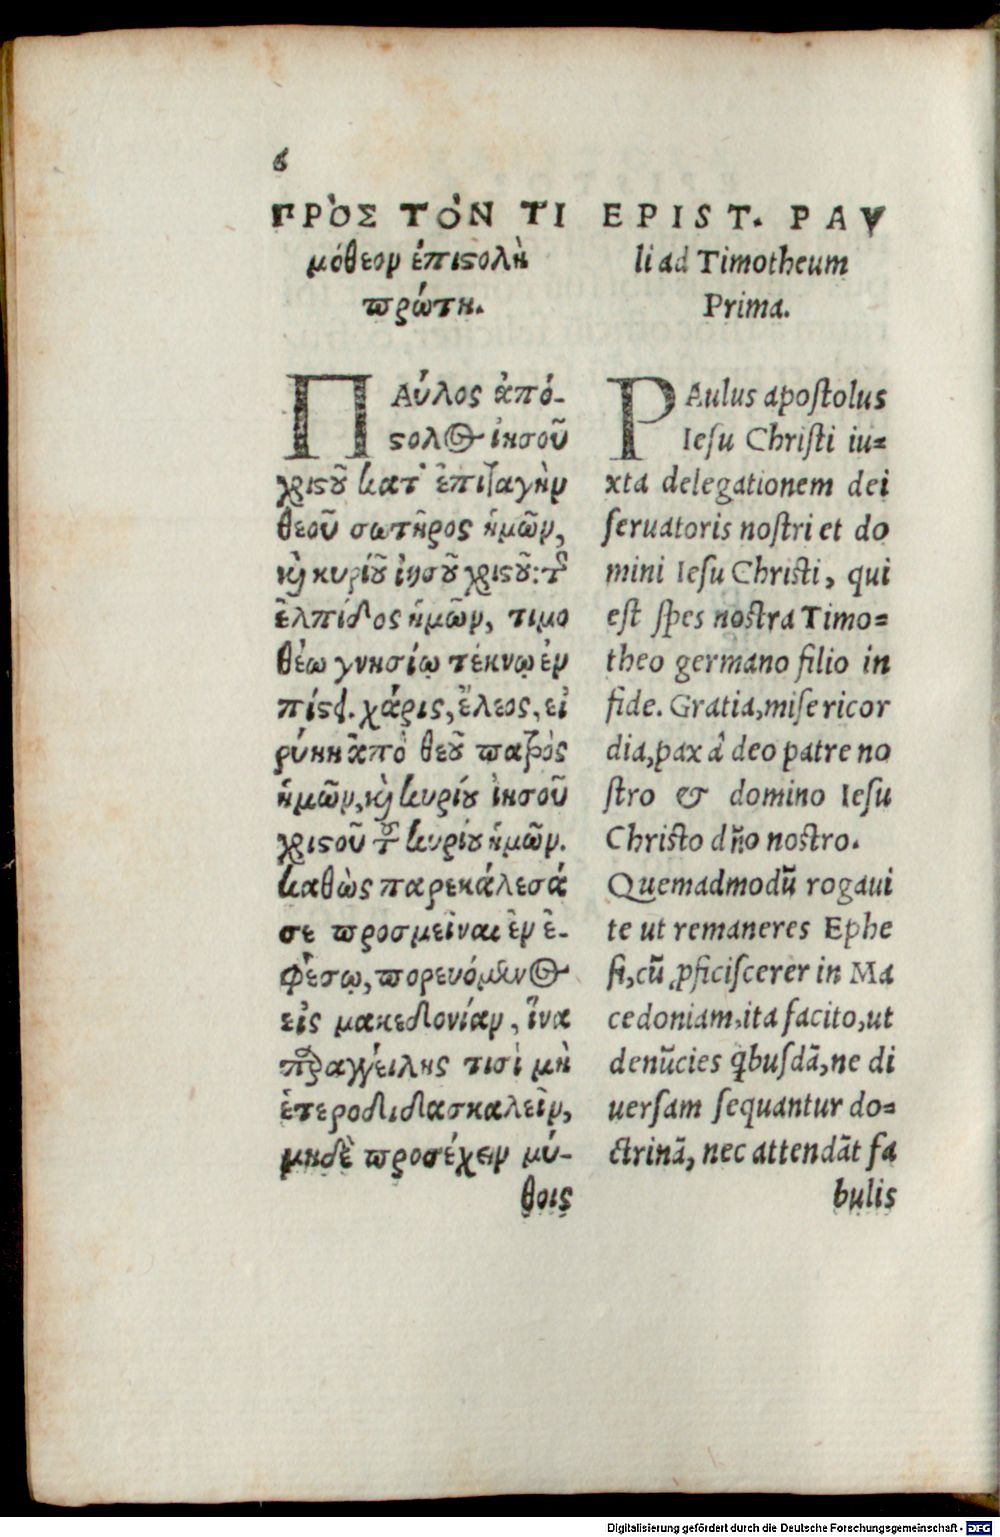 6
ΠΡῸΣ ΤῸΝ ΤΙ
μόθεον ἐπιϛολὴ
πρώτη.
ΠΑύλος ἀπό-
ϛολος ἰησοῦ
χριϛοῦ κατ' ἐπιταγὴν
θεοῦ σωτῆρος ἡμῶν,
καὶ κυρίου ἰησοῦ χριϛοῦ: τῆς
ἐλπίδος ἡμῶν, τιμο
θέω γνησίῳ τέκνῳ ἐν
πίϛει. χάρις, ἔλεος, εἰ
ρήνη ἀπὸ θεοῦ πατρὸς
ἡμῶν, καὶ κυρίου ἰησοῦ
χριϛοῦ τοῦ κυρίου ἡμῶν.
καθὼς παρεκάλεσά
σε προσμεῖναι ἐν ἐ-
φέσῳ, πορευόμενος
εἰς μακεδονίαν, ἵνα
παραγγείλης τισὶ μὴ
ἑτεροδιδασκαλεῖν,
μηδὲ προσέχειν μύ-
θοις
EPIST. PAV
li ad Timotheum
Prima.
PAulus apoſtolus
Ieſu Chriſti iu=
xta delegationem dei
ſeruatoris noſtri et do
mini Ieſu Chriſti, qui
eſt ſpes noſtra Timo=
theo germano filio in
fide. Gratia, miſericor
dia, pax â deo patre no
ſtro & domino Ieſu
Chriſto dño noſtro.
Quemadmodũ rogaui
te ut remaneres Ephe
ſi, cũ ꝓficiſcerer in Ma
cedoniam, ita facito, ut
denũcies qͥbuſdã, ne di
uerſam ſequantur do=
ctrinã, nec attendãt fa
bulis
Digitalisierung gefördert durch die Deutsche Forschungsgemeinschaft - DFG